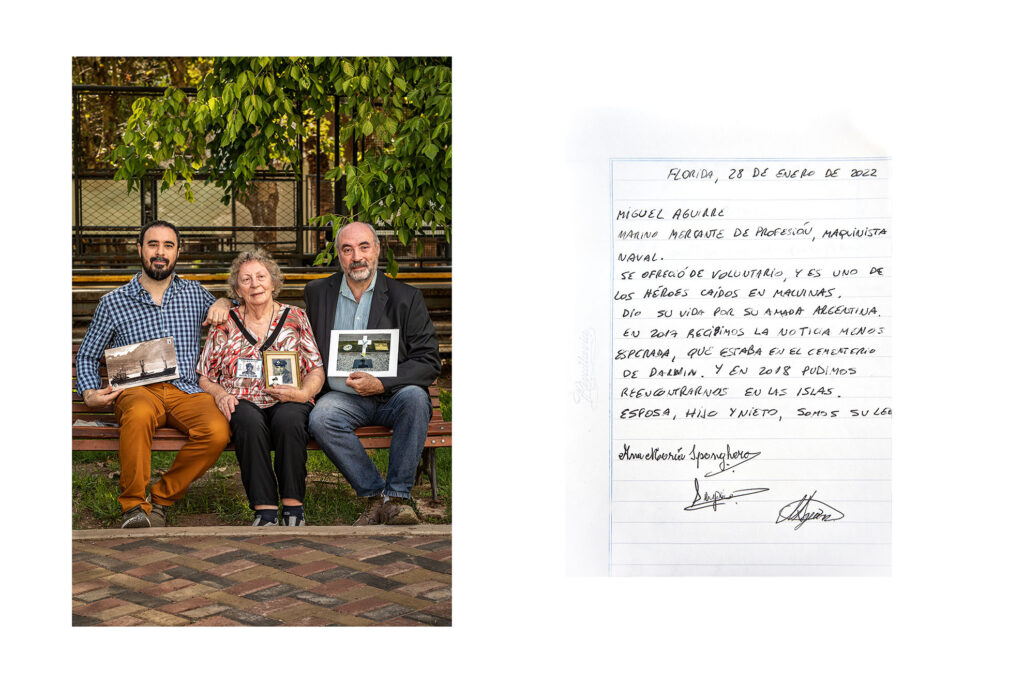 FLORIDA, 28 DE ENERO DE 2022
MIGUEL AGUIRRE
MARINO MERCANTE DE PROFESIÓN, MAQUINISTA
NAVAL.
SE OFRECIÓ DE VOLUNTARIO, Y ES UNO DE
LOS HÉROES CAÍDOS EN MALVINAS.
DIO SU VIDA POR SU AMADA ARGENTINA.
EN 2017 RECIBIMOS LA NOTICIA MENOS
ESPERADA, QUE ESTABA EN EL CEMENTERIO
DE DARWIN. Y EN 2018 PUDIMOS
REENCONTRARNOS EN LAS ISLAS.
ESPOSA, HIJO Y NIETO, SOMOS SU LEG
Ana María Sponghero